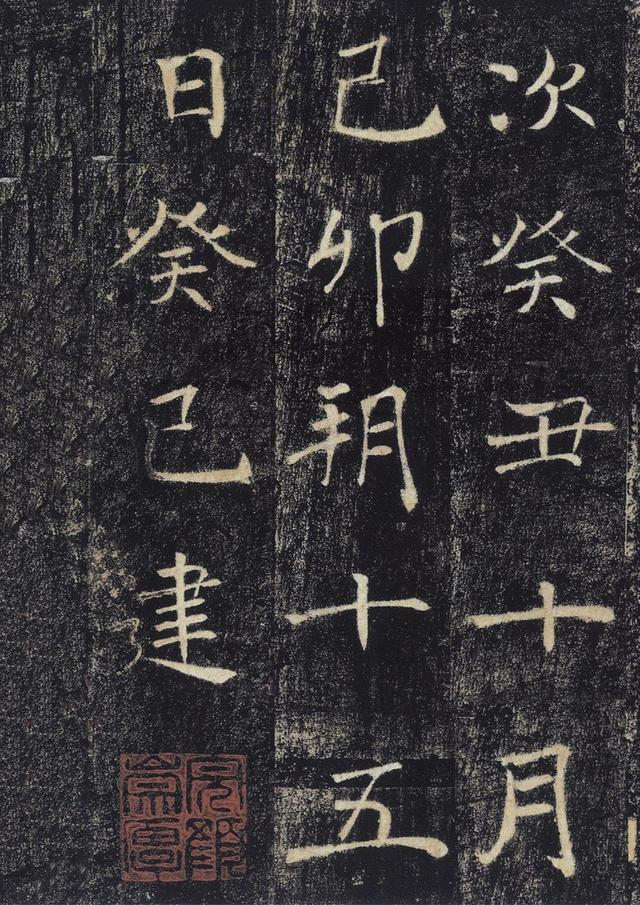 次癸丑十月
己卯朔十五
日癸巳建